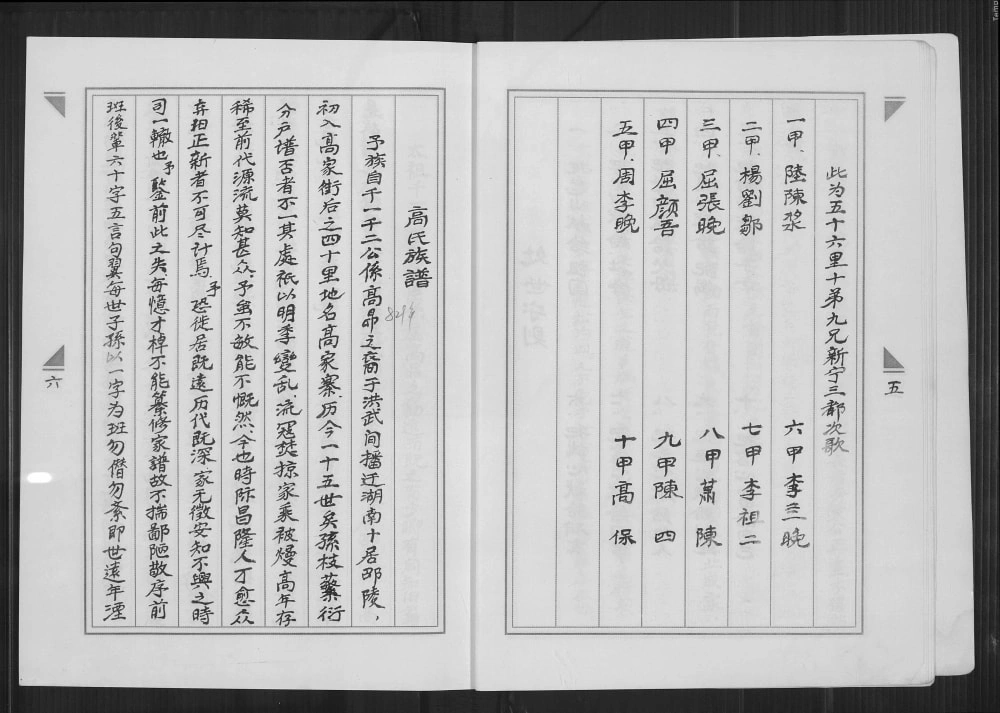 五
此为五十六里十第九兄新宁三都次歌
一甲、陸陳漿 六甲李三晚
二甲、楊劉鄒 七甲李祖二
三甲、屈張晚 八甲蕭陳
四甲屈颜吾 九甲陳四
五甲、周李晚 十甲高保
六
高氏族譜
予族自千一千二公係高昂之裔于洪武间播迁湖南十居邵陵，
初入高家街后之四十里地名高家寨、历今一十五世矣孫枝蘩衍
分户谱否者不一其處衹以明季變乱、流冦焚掠家乘被熳高年存
稀至前代源流莫知甚众、予虽不敏能不慨然、今也時际昌隆人丁愈众
弃祖正新者不可尽计焉、予恐徙居既遠历代既深家无徵安知不與之時
司一轍也予鑒前此之失、每憶才棹不能纂修家譜故不揣鄙陋敬序前
班後輩六十字五言句翼每世子孫以一字为班勿僭勿紊即世遠年湮